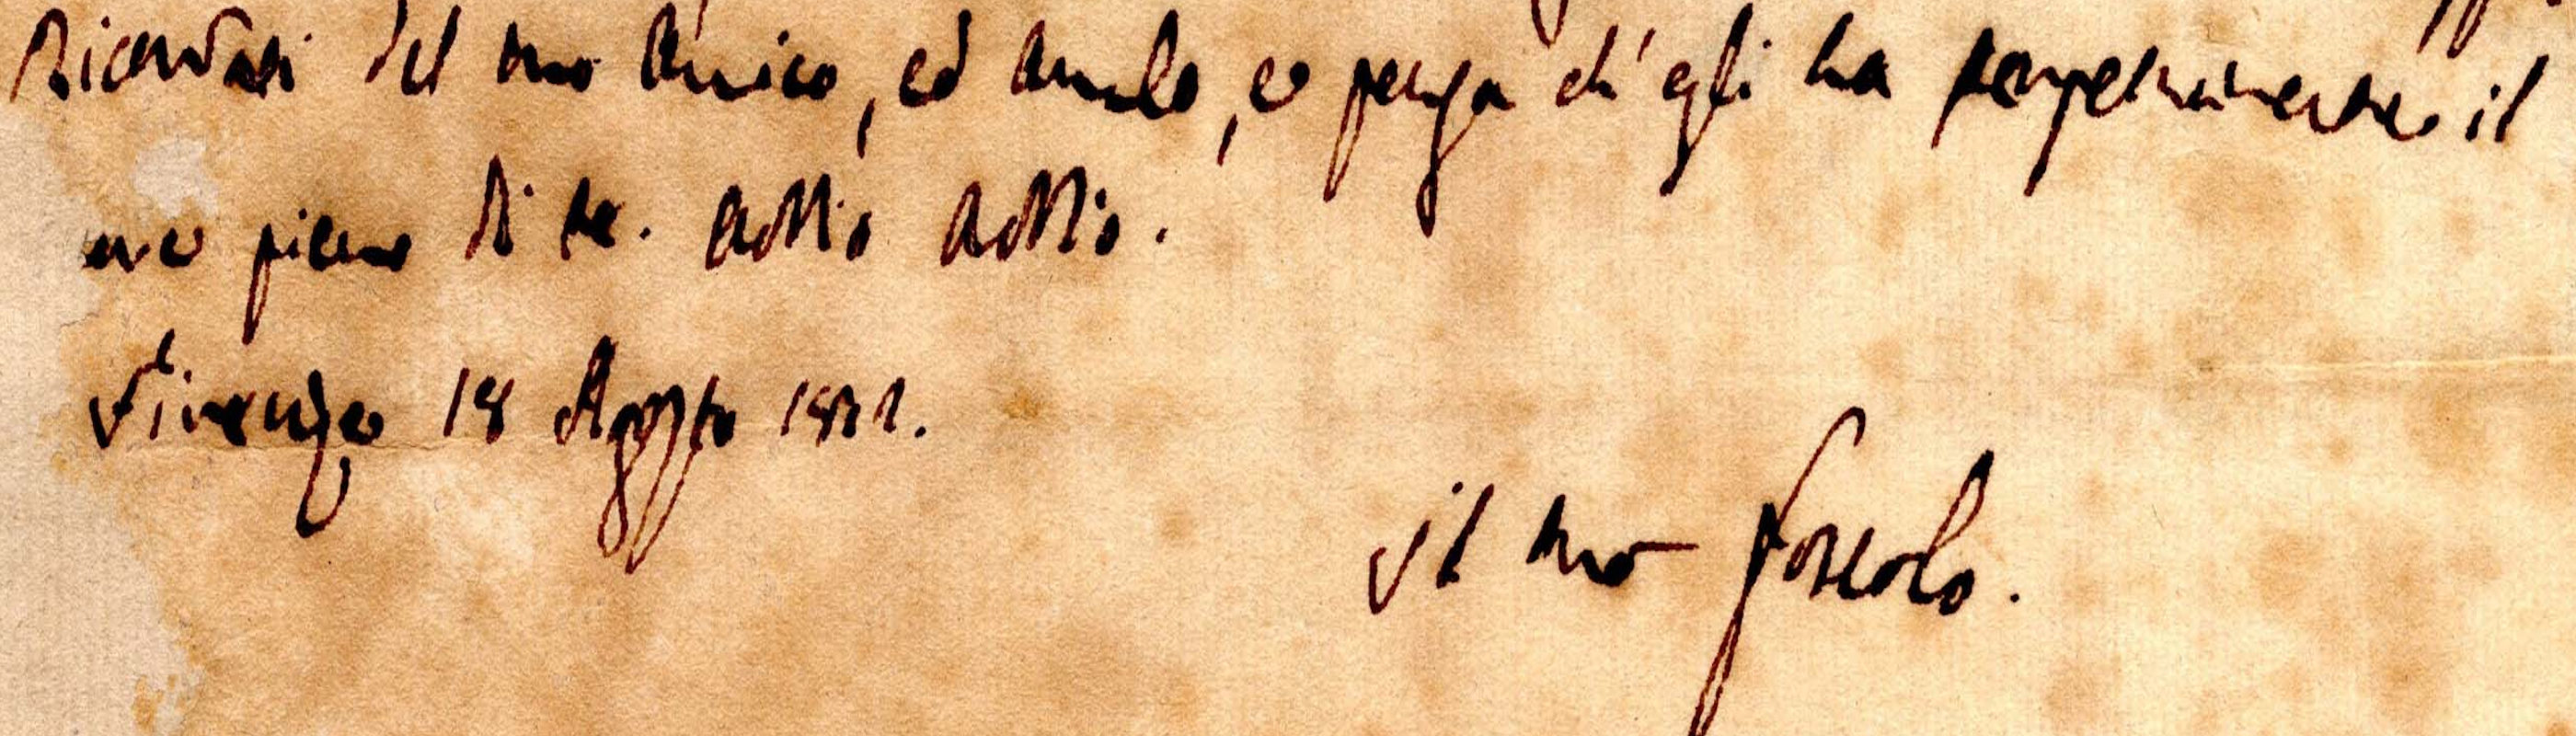 Ricordati del tuo Amico, ed amalo, e pensa ch'egli ha perpetuamente il
cuore pieno di te. addio addio.
Firenze 18 Agosto
il tuo Foscolo.